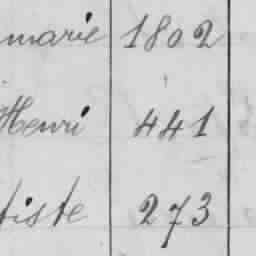 marie 1802
Henri 441
tiste 273